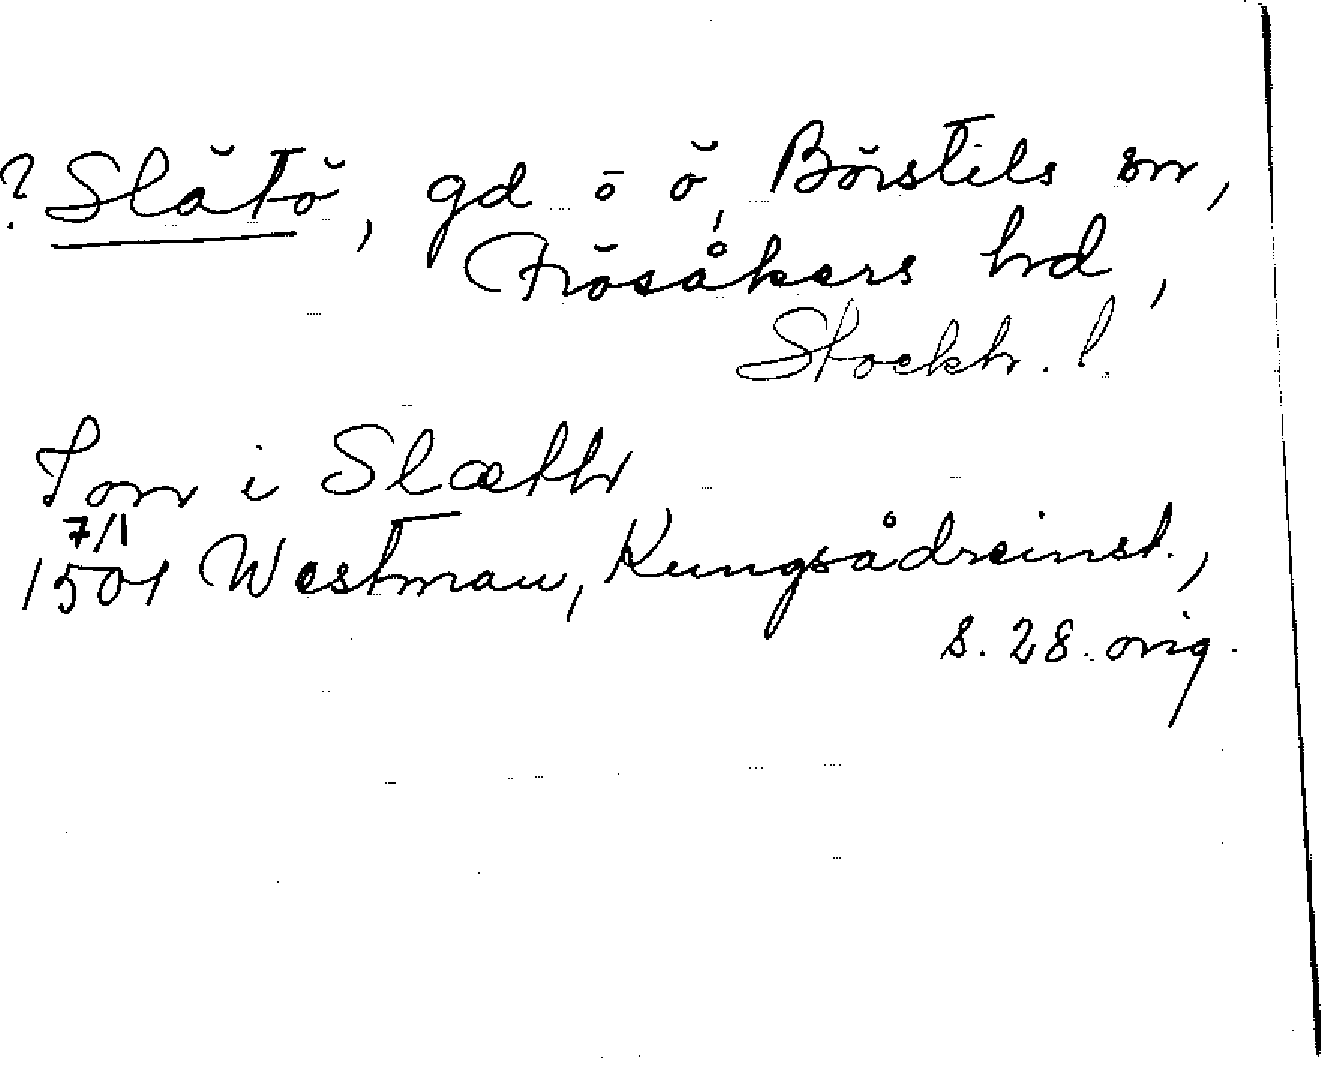 ? Slätö, gd o ö, Börstils sn,
Frösåkers hd,
Stockh. l.
Jon i Slæthr
7/1
1501 Westman, Kungsådreinst.,
s. 28. orig.